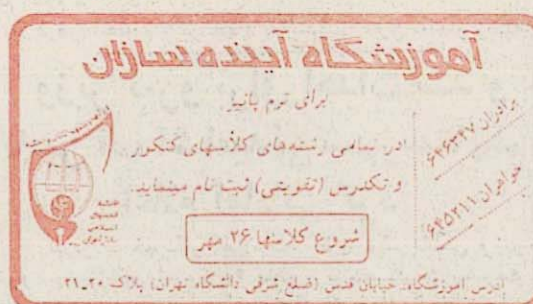 آموزشگاه آینده سازان
برای ترم پائیز
در تمامی رشته های کلاسهای کنکور
و تکدرس (تقویتی) ثبت نام مینماید.
شروع کلاسها ۲۶ مهر
برادران ۶۴۶۳۴۷
خواهران ۶۴۵۳۱۱
آدرس آموزشگاه: خیابان قدس (ضلع شرقی دانشگاه تهران) پلاک ۲۰ـ۲۱